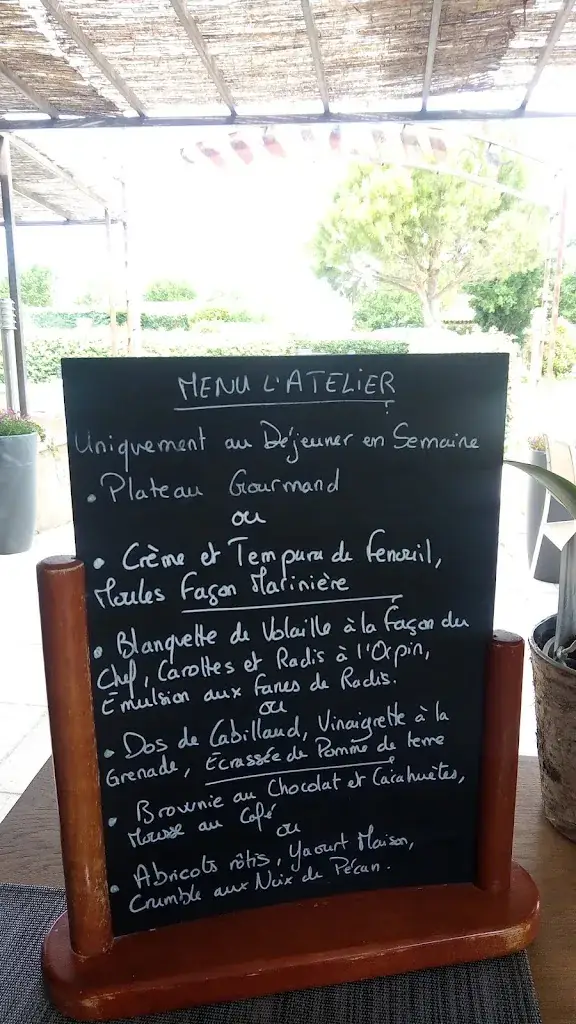 MENU L'ATELIER
Uniquement au Déjeuner en Semaine
• Plateau Gourmand
ou
• Crème et Tempura de Fenouil,
Moules Façon Marinière
• Blanquette de Volaille à la façon du
Chef, Carottes et Radis à l'Orpin,
Emulsion aux fanes de Radis.
ou
• Dos de Cabillaud, Vinaigrette à la
Grenade, Ecrassée de Pomme de terre
• Brownie au Chocolat et Cacahuètes,
Mousse au Café
ou
• Abricots rôtis, Yaourt Maison,
Crumble aux Noix de Pécan.